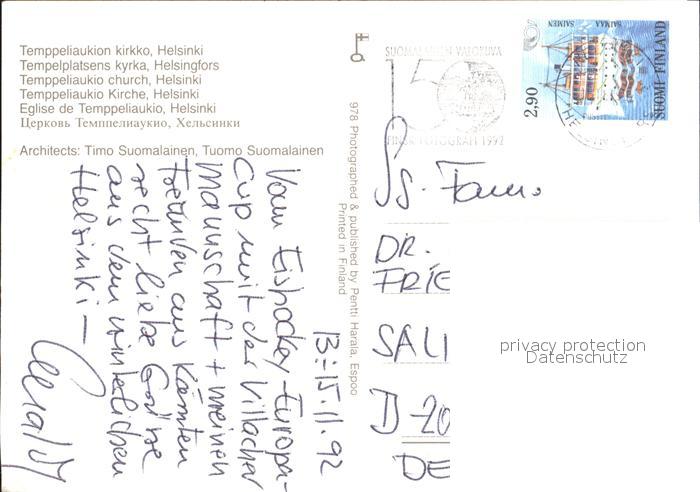 Temppeliaukion kirkko, Helsinki
Tempelplatsens kyrka, Helsingfors
Temppeliaukio church, Helsinki
Temppeliaukio Kirche, Helsinki
Eglise de Temppeliaukio, Helsinki
Церковь Темппелиаукио, Хельсинки
Architects: Timo Suomalainen, Tuomo Suomalainen
13.-15.11.92
Vom Eishockey-Europa-
cup mit der Villacher
Mannschaft + meinen
Freunden aus Kärnten
recht liebe Grüße
aus dem winterlichen
Helsinki –
978 Photographed & published by Pentti Harala, Espoo
Printed in Finland
SUOMALAINEN VALOKUVA
FINSK FOTOGRAFI 1992
SAIMEN
SAIMAA
2,90
SUOMI FINLAND
DR.
FRIE
SALI
D-20
DE
privacy protection
Datenschutz